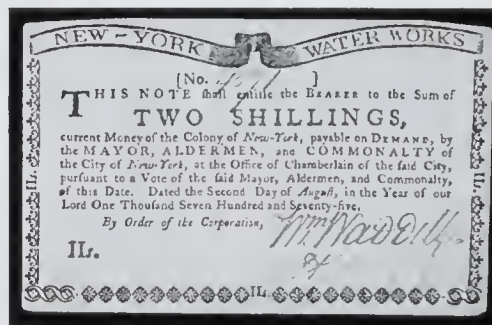 NEW-YORK WATER WORKS
[No. ]
THIS NOTE shall entitle the BEARER to the Sum of
TWO SHILLINGS,
current Money of the Colony of New-York, payable on DEMAND, by
the MAYOR, ALDERMEN, and COMMONALTY of
the City of New-York, at the Office of Chamberlain of the said City,
pursuant to a Vote of the said Mayor, Aldermen, and Commonalty,
of this Date. Dated the Second Day of August, in the Year of our
Lord One Thousand Seven Hundred and Seventy-five.
By Order of the Corporation,
Wm Waddell
IIs.
IIs.
IIs.
IIs.